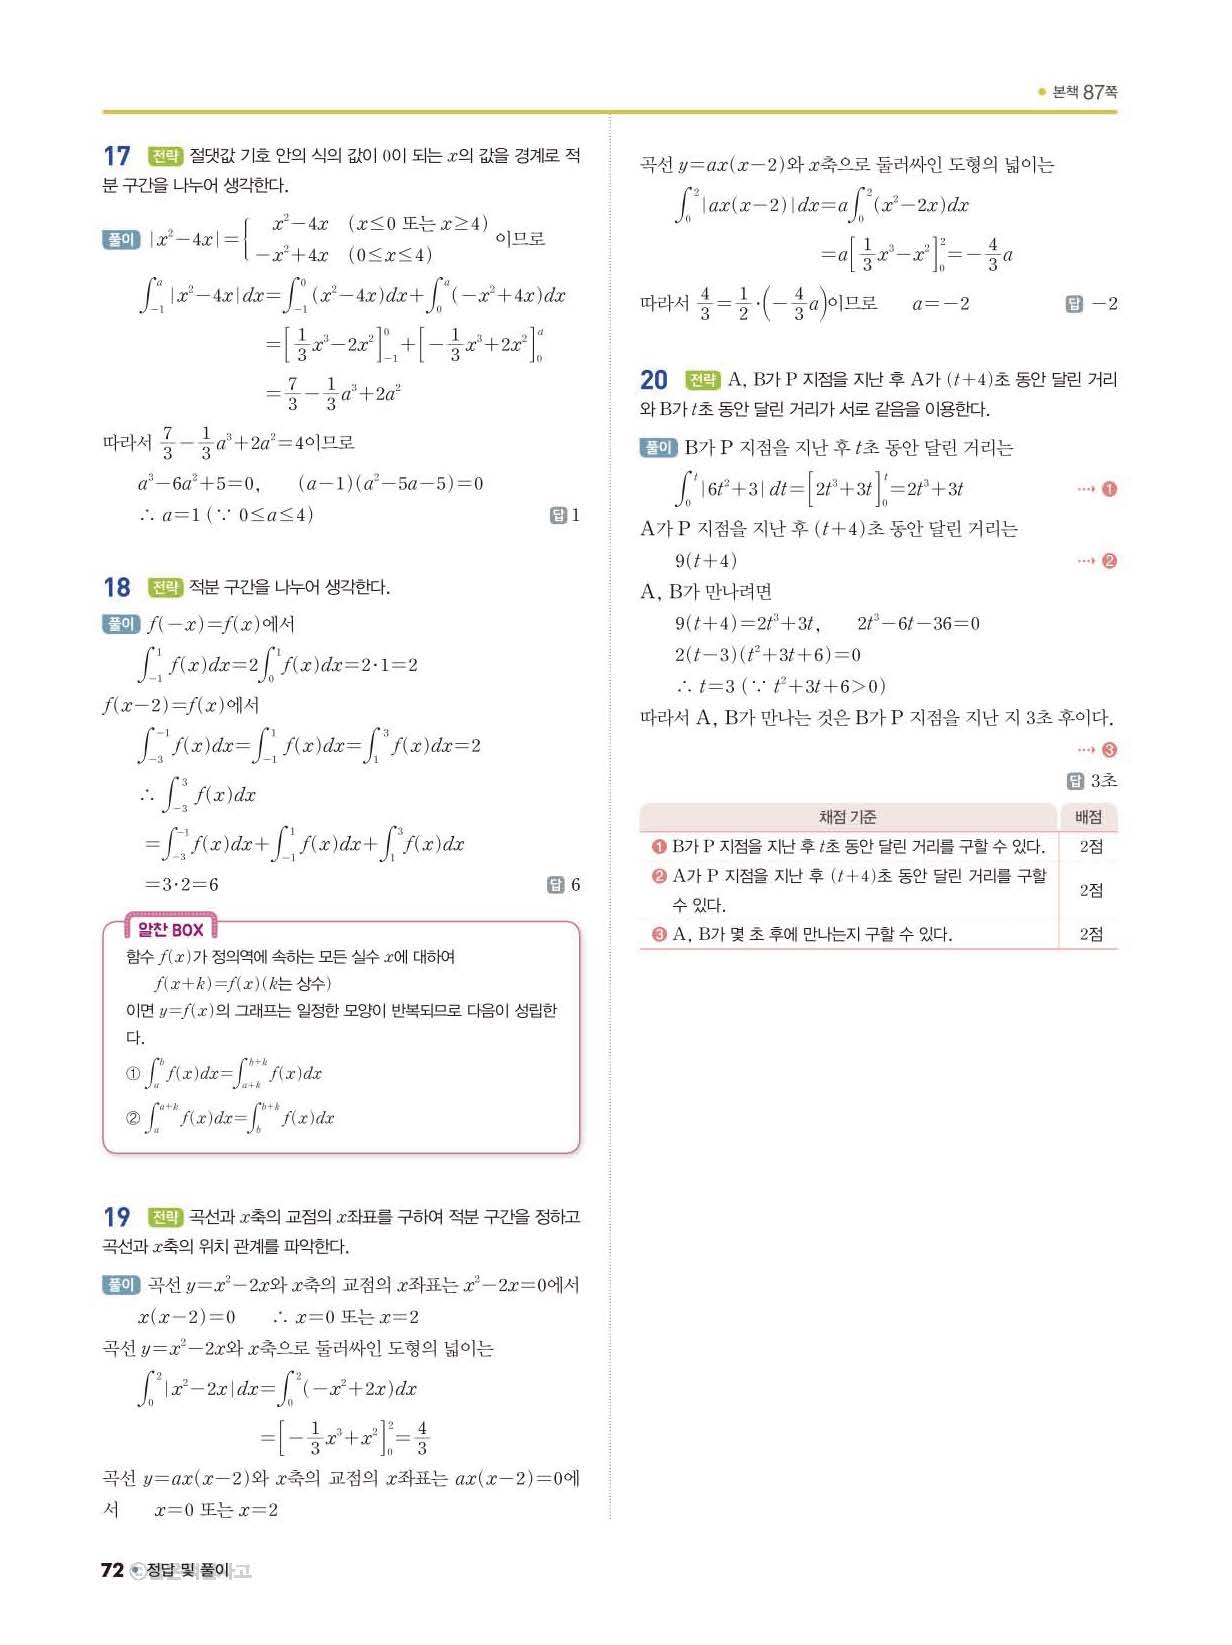 본책 87쪽
17 전략 절댓값 기호 안의 식의 값이 0이 되는 x의 값을 경계로 적
분 구간을 나누어 생각한다.
풀이 |x²-4x|={ x²-4x (x≤0 또는 x≥4)
-x²+4x (0≤x≤4) 이므로
∫₋₁ᵃ|x²-4x|dx=∫₋₁⁰(x²-4x)dx+∫₀ᵃ(-x²+4x)dx
=[1/3x³-2x²]₋₁⁰+[-1/3x³+2x²]₀ᵃ
=7/3-1/3a³+2a²
따라서 7/3-1/3a³+2a²=4이므로
a³-6a²+5=0, (a-1)(a²-5a-5)=0
∴ a=1 (∵ 0≤a≤4) 답 1
18 전략 적분 구간을 나누어 생각한다.
풀이 f(-x)=f(x)에서
∫₋₁¹f(x)dx=2∫₀¹f(x)dx=2·1=2
f(x-2)=f(x)에서
∫₋₃⁻¹f(x)dx=∫₋₁¹f(x)dx=∫₁³f(x)dx=2
∴ ∫₋₃³f(x)dx
=∫₋₃⁻¹f(x)dx+∫₋₁¹f(x)dx+∫₁³f(x)dx
=3·2=6 답 6
알찬 BOX
함수 f(x)가 정의역에 속하는 모든 실수 x에 대하여
f(x+k)=f(x)(k는 상수)
이면 y=f(x)의 그래프는 일정한 모양이 반복되므로 다음이 성립한
다.
① ∫ₐᵇf(x)dx=∫ₐ₊ₖᵇ⁺ᵏf(x)dx
② ∫ₐᵃ⁺ᵏf(x)dx=∫_b^(b+k) f(x)dx
19 전략 곡선과 x축의 교점의 x좌표를 구하여 적분 구간을 정하고
곡선과 x축의 위치 관계를 파악한다.
풀이 곡선 y=x²-2x와 x축의 교점의 x좌표는 x²-2x=0에서
x(x-2)=0 ∴ x=0 또는 x=2
곡선 y=x²-2x와 x축으로 둘러싸인 도형의 넓이는
∫₀²|x²-2x|dx=∫₀²(-x²+2x)dx
=[-1/3x³+x²]₀²=4/3
곡선 y=ax(x-2)와 x축의 교점의 x좌표는 ax(x-2)=0에
서 x=0 또는 x=2
곡선 y=ax(x-2)와 x축으로 둘러싸인 도형의 넓이는
∫₀²|ax(x-2)|dx=a∫₀²(x²-2x)dx
=a[1/3x³-x²]₀²=-4/3a
따라서 4/3=1/2·(-4/3a)이므로 a=-2 답 -2
20 전략 A, B가 P 지점을 지난 후 A가 (t+4)초 동안 달린 거리
와 B가 t초 동안 달린 거리가 서로 같음을 이용한다.
풀이 B가 P 지점을 지난 후 t초 동안 달린 거리는
∫₀ᵗ|6t²+3|dt=[2t³+3t]₀ᵗ=2t³+3t ⋯→ ❶
A가 P 지점을 지난 후 (t+4)초 동안 달린 거리는
9(t+4) ⋯→ ❷
A, B가 만나려면
9(t+4)=2t³+3t, 2t³-6t-36=0
2(t-3)(t²+3t+6)=0
∴ t=3 (∵ t²+3t+6>0)
따라서 A, B가 만나는 것은 B가 P 지점을 지난 지 3초 후이다.
⋯→ ❸
답 3초
채점 기준 배점
❶ B가 P 지점을 지난 후 t초 동안 달린 거리를 구할 수 있다. 2점
❷ A가 P 지점을 지난 후 (t+4)초 동안 달린 거리를 구할
수 있다. 2점
❸ A, B가 몇 초 후에 만나는지 구할 수 있다. 2점
72 정답 및 풀이